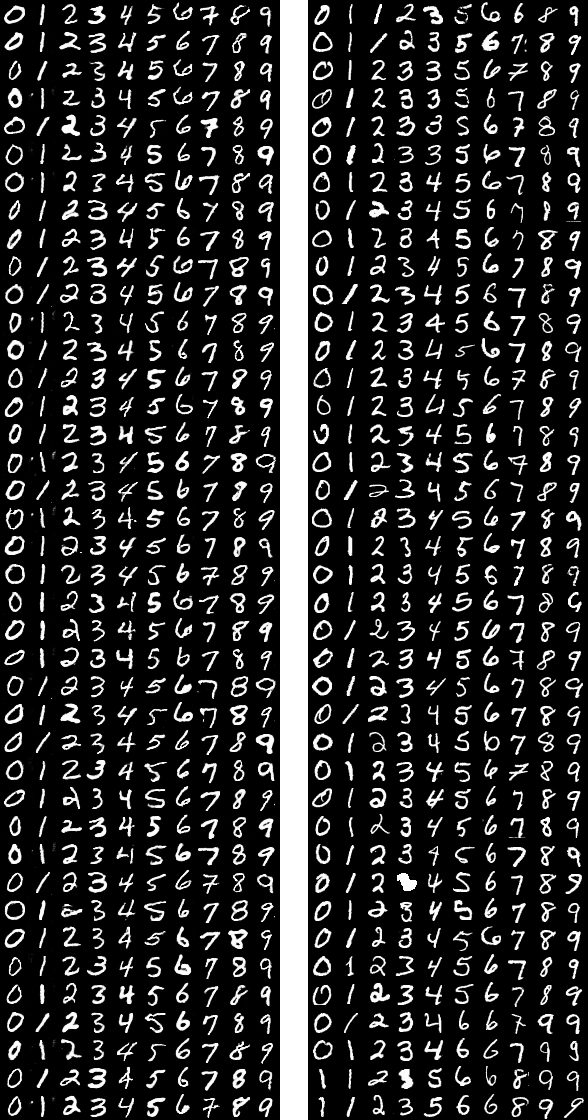 0 1 2 3 4 5 6 7 8 9
0 1 2 3 4 5 6 7 8 9
0 1 2 3 4 5 6 7 8 9
0 1 2 3 4 5 6 7 8 9
0 1 2 3 4 5 6 7 8 9
0 1 2 3 4 5 6 7 8 9
0 1 2 3 4 5 6 7 8 9
0 1 2 3 4 5 6 7 8 9
0 1 2 3 4 5 6 7 8 9
0 1 2 3 4 5 6 7 8 9
0 1 2 3 4 5 6 7 8 9
0 1 2 3 4 5 6 7 8 9
0 1 2 3 4 5 6 7 8 9
0 1 2 3 4 5 6 7 8 9
0 1 2 3 4 5 6 7 8 9
0 1 2 3 4 5 6 7 8 9
0 1 2 3 4 5 6 7 8 9
0 1 2 3 4 5 6 7 8 9
0 1 2 3 4 5 6 7 8 9
0 1 2 3 4 5 6 7 8 9
0 1 2 3 4 5 6 7 8 9
0 1 2 3 4 5 6 7 8 9
0 1 2 3 4 5 6 7 8 9
0 1 2 3 4 5 6 7 8 9
0 1 2 3 4 5 6 7 8 9
0 1 2 3 4 5 6 7 8 9
0 1 2 3 4 5 6 7 8 9
0 1 2 3 4 5 6 7 8 9
0 1 2 3 4 5 6 7 8 9
0 1 2 3 4 5 6 7 8 9
0 1 2 3 4 5 6 7 8 9
0 1 2 3 4 5 6 7 8 9
0 1 2 3 4 5 6 7 8 9
0 1 2 3 4 5 6 7 8 9
0 1 2 3 4 5 6 7 8 9
0 1 2 3 4 5 6 7 8 9
0 1 2 3 4 5 6 7 8 9
0 1 2 3 4 5 6 7 8 9
0 1 2 3 4 5 6 7 8 9
0 1 2 3 4 5 6 7 8 9
0 1 1 2 3 5 6 6 8 9
0 1 1 2 3 5 6 7 8 9
0 1 2 3 3 5 6 7 8 9
0 1 2 3 3 5 6 7 8 9
0 1 2 3 3 5 6 7 8 9
0 1 2 3 3 5 6 7 8 9
0 1 2 3 4 5 6 7 8 9
0 1 2 3 4 5 6 7 8 9
0 1 2 3 4 5 6 7 8 9
0 1 2 3 4 5 6 7 8 9
0 1 2 3 4 5 6 7 8 9
0 1 2 3 4 5 6 7 8 9
0 1 2 3 4 5 6 7 8 9
0 1 2 3 4 5 6 7 8 9
0 1 2 3 4 5 6 7 8 9
0 1 2 5 4 5 6 7 8 9
0 1 2 3 4 5 6 7 8 9
0 1 2 3 4 5 6 7 8 9
0 1 2 3 4 5 6 7 8 9
0 1 2 3 4 5 6 7 8 9
0 1 2 3 4 5 6 7 8 9
0 1 2 3 4 5 6 7 8
0 1 2 3 4 5 6 7 8 9
0 1 2 3 4 5 6 7 8 9
0 1 2 3 4 5 6 7 8 9
0 1 2 3 4 5 6 7 8 9
0 1 2 3 4 5 6 7 8 9
0 1 2 3 4 5 6 7 8 9
0 1 2 3 4 5 6 7 8 9
0 1 2 3 4 5 6 7 8 9
0 1 2 3 4 5 6 7 8 9
0 1 2 4 5 6 7 8 9
0 1 2 3 4 5 6 7 8 9
0 1 2 3 4 5 6 7 8 9
0 1 2 3 4 5 6 7 8 9
0 1 2 3 4 5 6 7 8 9
0 1 2 3 4 6 6 7 9 9
0 1 2 3 4 6 6 7 9 9
1 1 2 8 5 6 6 8 9 9
1 1 2 3 5 6 8 8 9 8